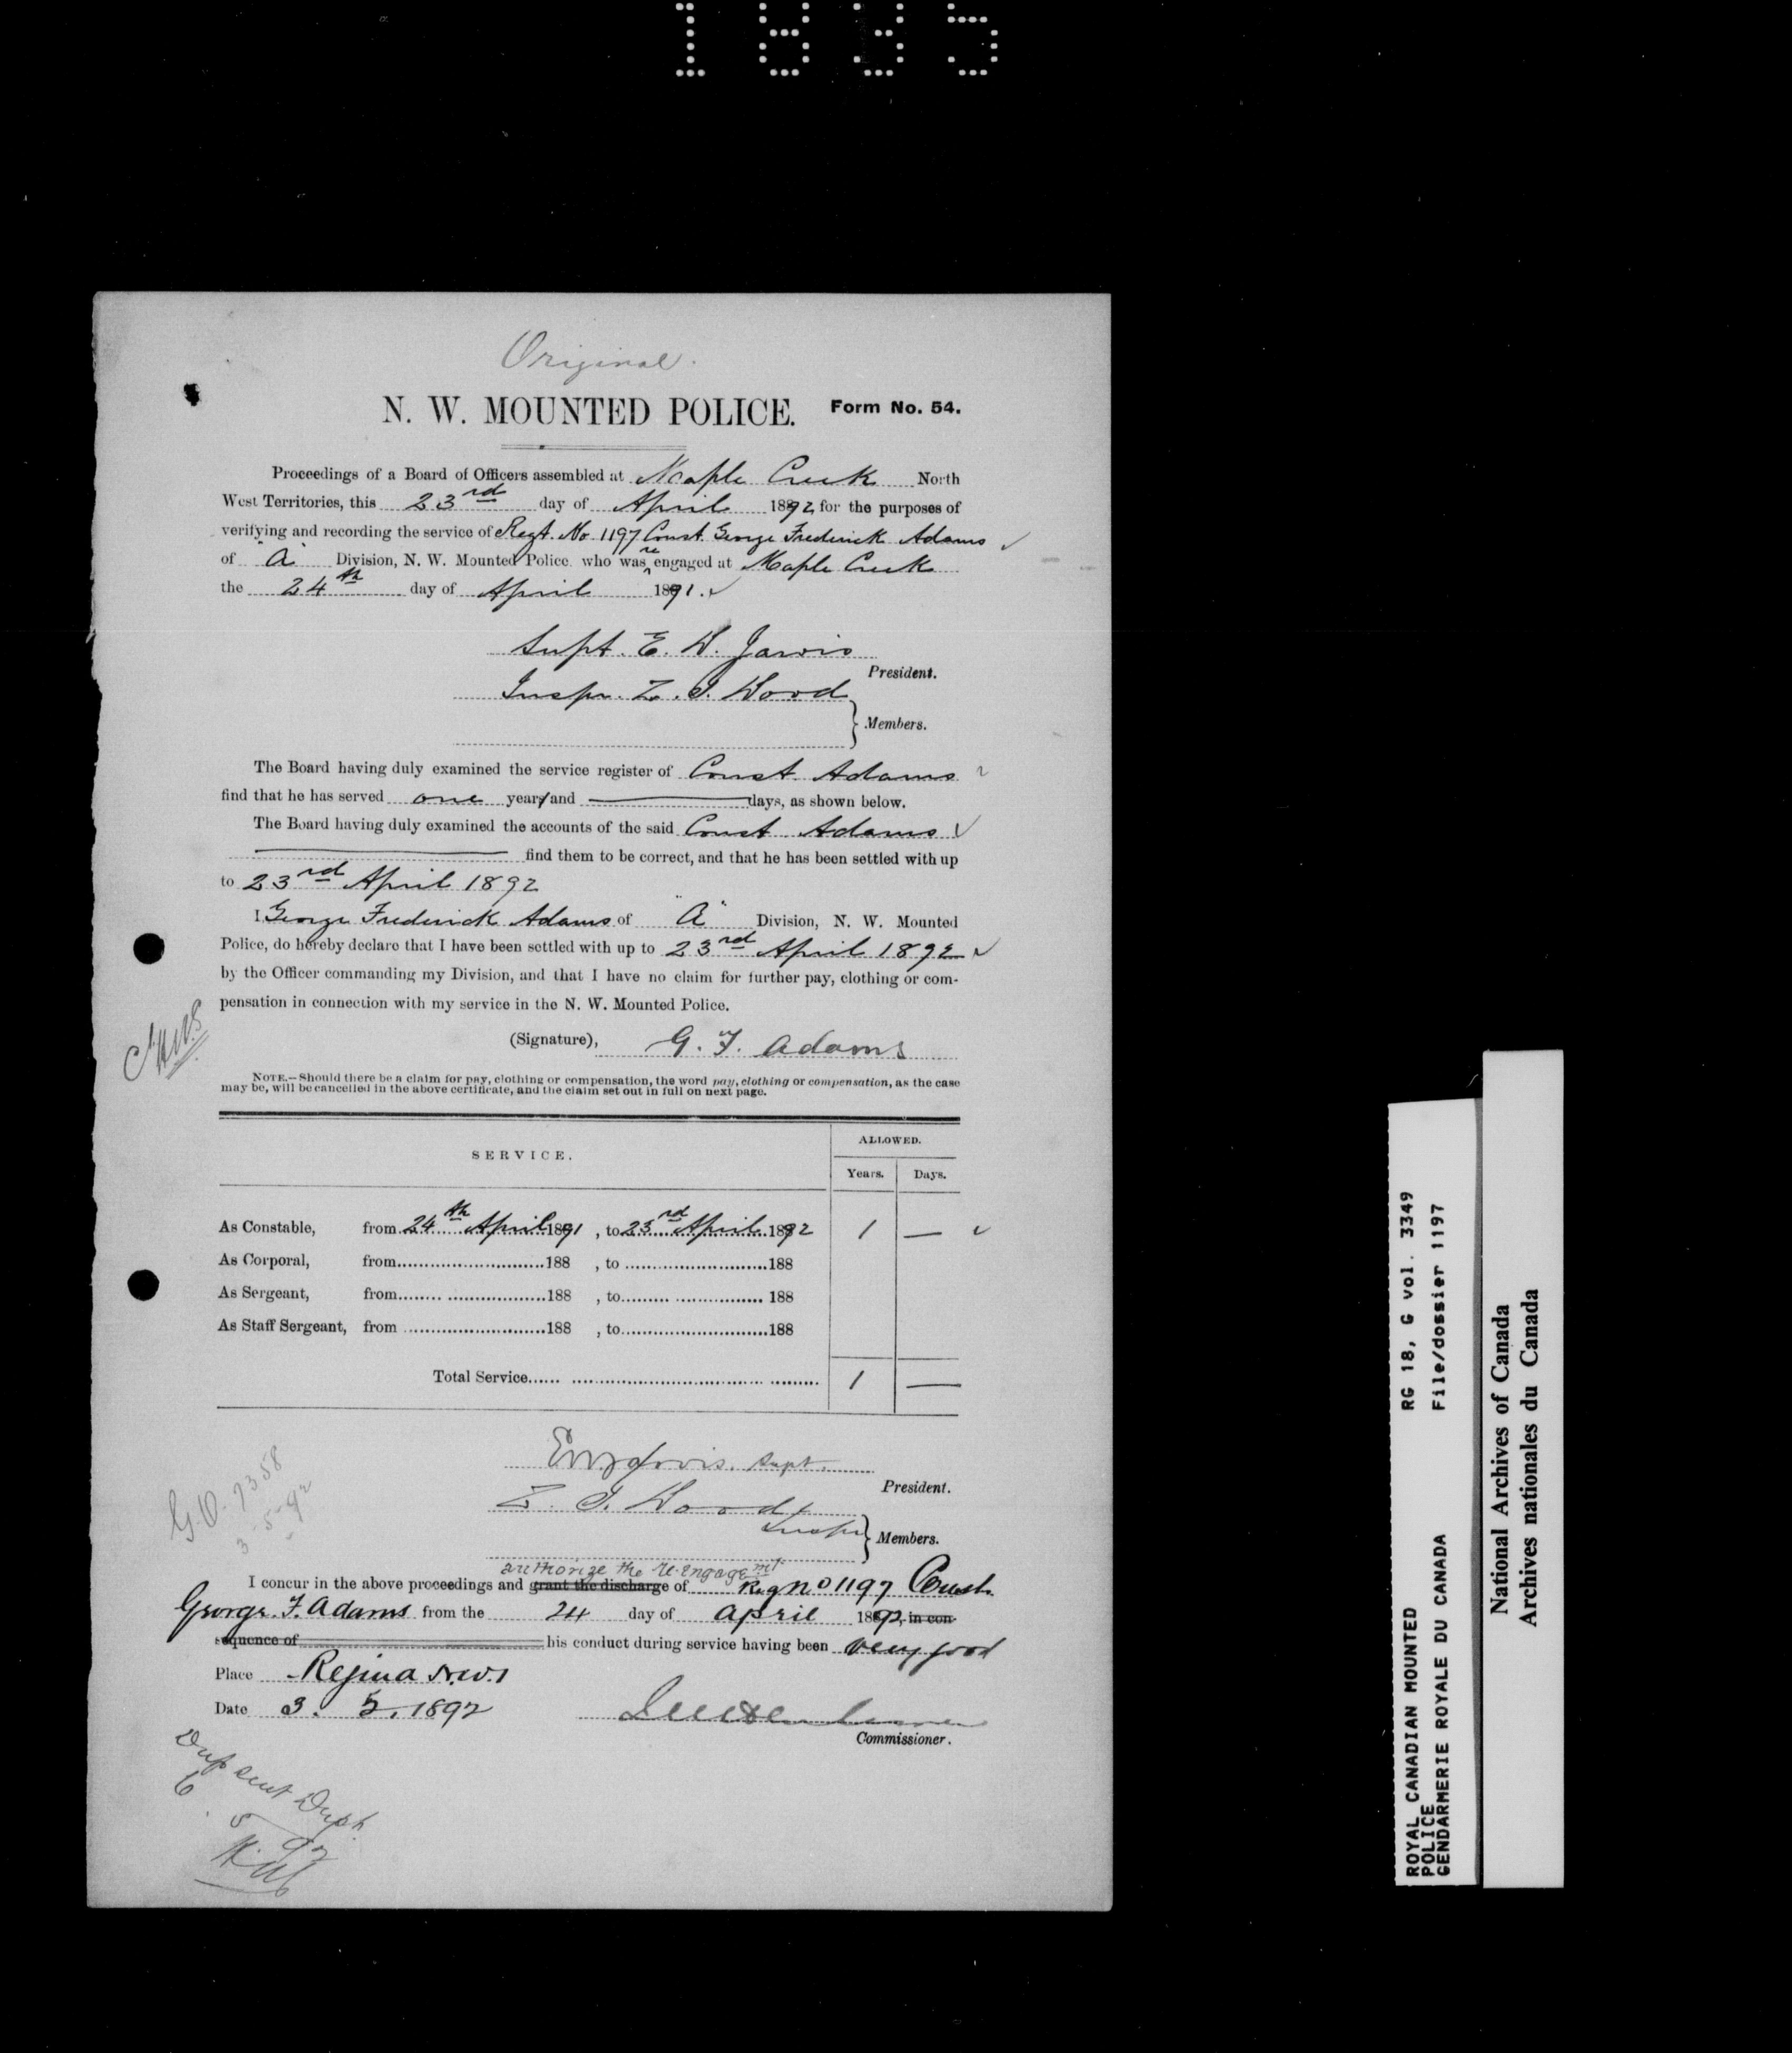 1885
Original.
N. W. MOUNTED POLICE. Form No. 54.
Proceedings of a Board of Officers assembled at Maple Creek North
West Territories, this 23rd day of April 1892 for the purposes of
verifying and recording the service of Regt. No 1197 Const. George Frederick Adams
of "A" Division, N. W. Mounted Police who was re engaged at Maple Creek
the 24th day of April 1891.
Supt. E. W. Jarvis
President.
Inspr. Z. T. Wood
Members.
The Board having duly examined the service register of Const. Adams
find that he has served one year and days, as shown below.
The Board having duly examined the accounts of the said Const Adams
find them to be correct, and that he has been settled with up
to 23rd April 1892
I George Frederick Adams of "A" Division, N. W. Mounted
Police, do hereby declare that I have been settled with up to 23rd April 1892
by the Officer commanding my Division, and that I have no claim for further pay, clothing or com-
pensation in connection with my service in the N. W. Mounted Police.
(Signature), G. F. Adams
NOTE.—Should there be a claim for pay, clothing or compensation, the word pay, clothing or compensation, as the case
may be, will be cancelled in the above certificate, and the claim set out in full on next page.
SERVICE. ALLOWED.
Years. Days.
As Constable, from 24th April 1891, to 23rd April 1892 1 —
As Corporal, from 188 , to 188
As Sergeant, from 188 , to 188
As Staff Sergeant, from 188 , to 188
Total Service 1 —
G.O. 7358
3-5-92
EWJarvis. Supt.
President.
Z. T. Wood
Inspr
Members.
authorize the re-engagemt
I concur in the above proceedings and grant the discharge of Reg No 1197 Const.
George F. Adams from the 24 day of April 1892, in con-
sequence of his conduct during service having been very good
Place Regina N.W.T
Date 3. 5. 1892
Commissioner.
Dup sent Dept.
6. 5 92
ROYAL CANADIAN MOUNTED POLICE RG 18, G vol. 3349
GENDARMERIE ROYALE DU CANADA File/dossier 1197
National Archives of Canada
Archives nationales du Canada